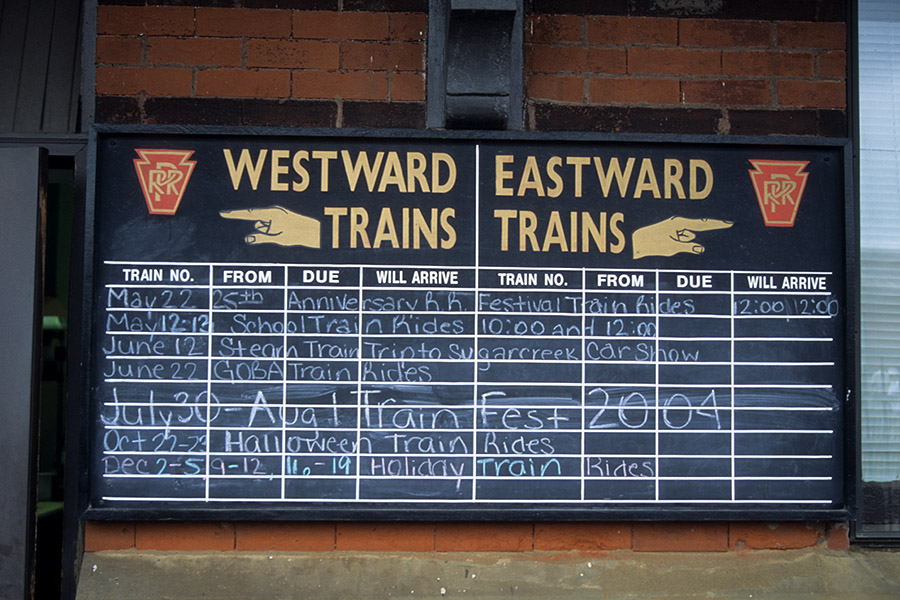 PRR WESTWARD EASTWARD PRR
TRAINS TRAINS
TRAIN NO. FROM DUE WILL ARRIVE TRAIN NO. FROM DUE WILL ARRIVE
May 22 25th Anniversary R.R. Festival Train Rides 12:00 12:00
May 12-13 School Train Rides 10:00 and 12:00
June 12 Steam Train Trip to Sugarcreek Car Show
June 22 GOBA Train Rides
July 30 - Aug 1 Train Fest 2004
Oct 22-23 Halloween Train Rides
Dec 2-5, 9-12, 16-19 Holiday Train Rides